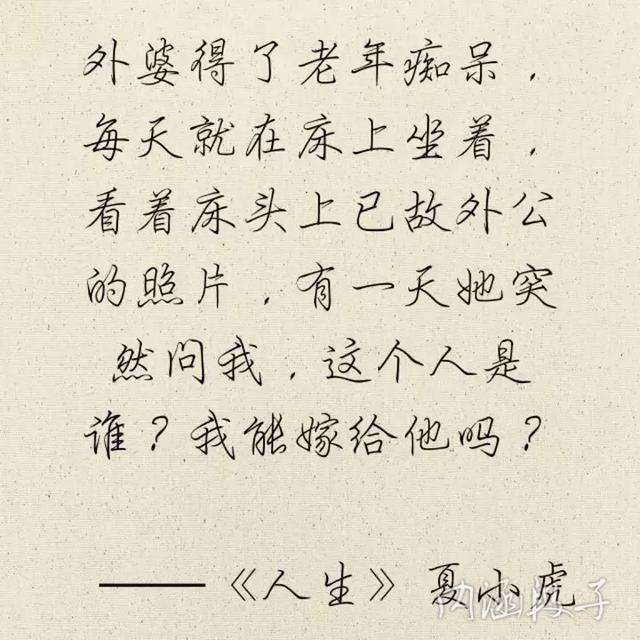 外婆得了老年痴呆，
每天就在床上坐着，
看着床头上已故外公
的照片，有一天她突
然问我，这个人是
谁？我能嫁给他吗？
——《人生》夏小虎
内涵段子